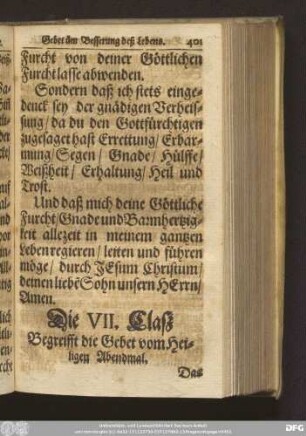 Gebet üm Besserung deß Lebens. 401
Furcht von deiner Göttlichen
Furcht lasse abwenden.
Sondern daß ich stets einge-
denck sey der gnädigen Verheis-
sung/ da du den Gottfürchtigen
zugesaget hast Errettung/ Erbar-
mung/ Segen/ Gnade/ Hülffe/
Weißheit/ Erhaltung/ Heil und
Trost.
Und daß mich deine Göttliche
Furcht/ Gnade und Barmhertzig-
keit allezeit in meinem gantzen
Leben regieren/ leiten und führen
möge/ durch JEsum Christum/
deinen liebē Sohn unsern HErrn/
Amen.
Die VII. Claß
Begreifft die Gebet vom Hei-
ligen Abendmal.
Das